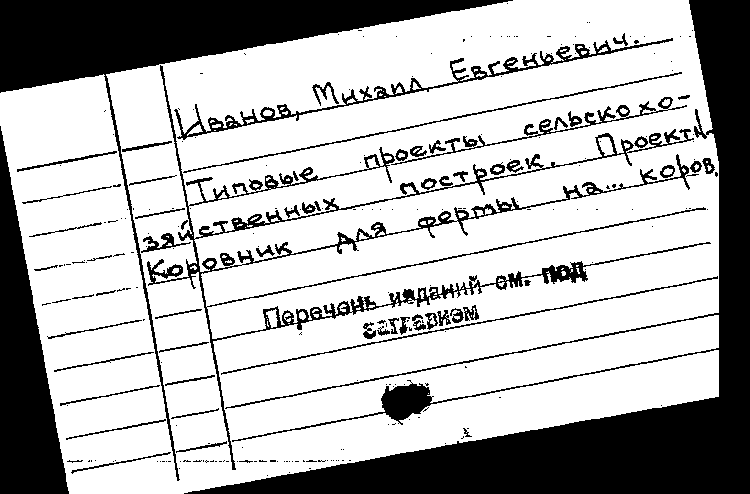 Иванов, Михаил Евгеньевич.
Типовые проекты сельскохо-
зяйственных построек. Проекты
Коровник для фермы на... коров.
Перечень изданий см. под
заглавием